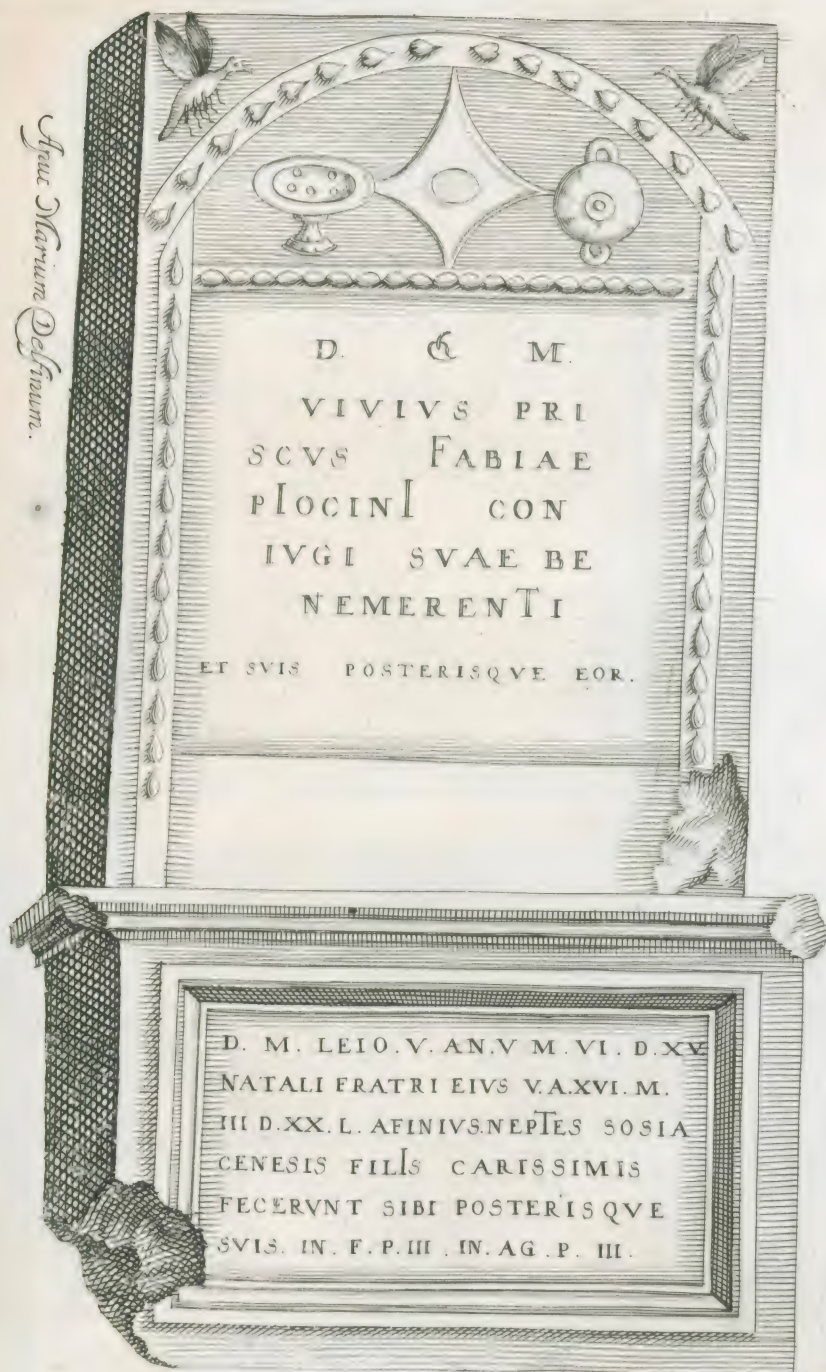 Apud Marium Delfinum.
D. M.
VIVIVS PRI
SCVS FABIAE
PIOCINI CON
IVGI SVAE BE
NEMERENTI
ET SVIS POSTERISQVE EOR.
D. M. LEIO. V. AN. V M. VI. D. XV
NATALI FRATRI EIVS V. A. XVI. M.
III D. XX. L. AFINIVS. NEPTES SOSIA
CENESIS FILIS CARISSIMIS
FECERVNT SIBI POSTERISQVE
SVIS. IN. F. P. III. IN. AG. P. III.